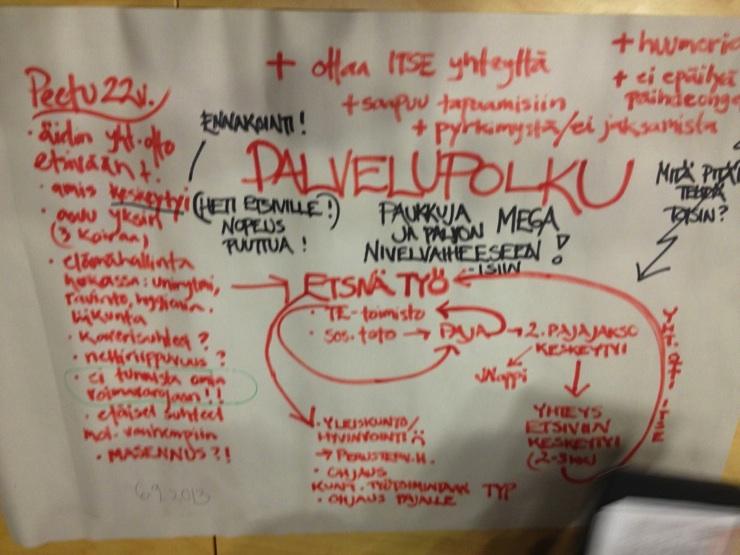 Peetu 22v.
· äidin yht.otto
etsivään t.
· amis keskeytyi
· asuu yksin
(3 koiraa)
· elämähallinta
hukassa: unirytmi,
ravinto, hygienia,
liikunta
· kaverisuhteet?
· nettiriippuvuus?
· ei tunnista omia
voimavarojaan!!
· etäiset suhteet
mol. vanhempiin
· MASENNUS?!
6.9.2013
+ ottaa ITSE yhteyttä
+ saapuu tapaamisiin
+ pyrkimystä/ei jaksamista
+ huumoria
+ ei epäilyä
päihdeong
ENNAKOINTI!
PALVELUPOLKU
(HETI ETSIVILLE!)
NOPEUS
PUUTTUA!
PAUKKUJA
JA PALJON MEGA
NIVELVAIHEESEEN!
-ISIIN
MITÄ PITÄ
TEHDÄ
TOISIN?
ETSNÄ TYÖ
· TE-toimisto
· sos.toto → PAJA → 2. PAJAJAKSO
KESKEYTYI
YHTEYS
ETSIVIIN
KESKEYTYI
(2-3KK)
· YLEISKUNTO/
HYVINVOINTI
→ PERUSTERV.H.
· OHJAUS
KUNT. TYÖTOIMINTAAN TYP
· OHJAUS PAJALLE